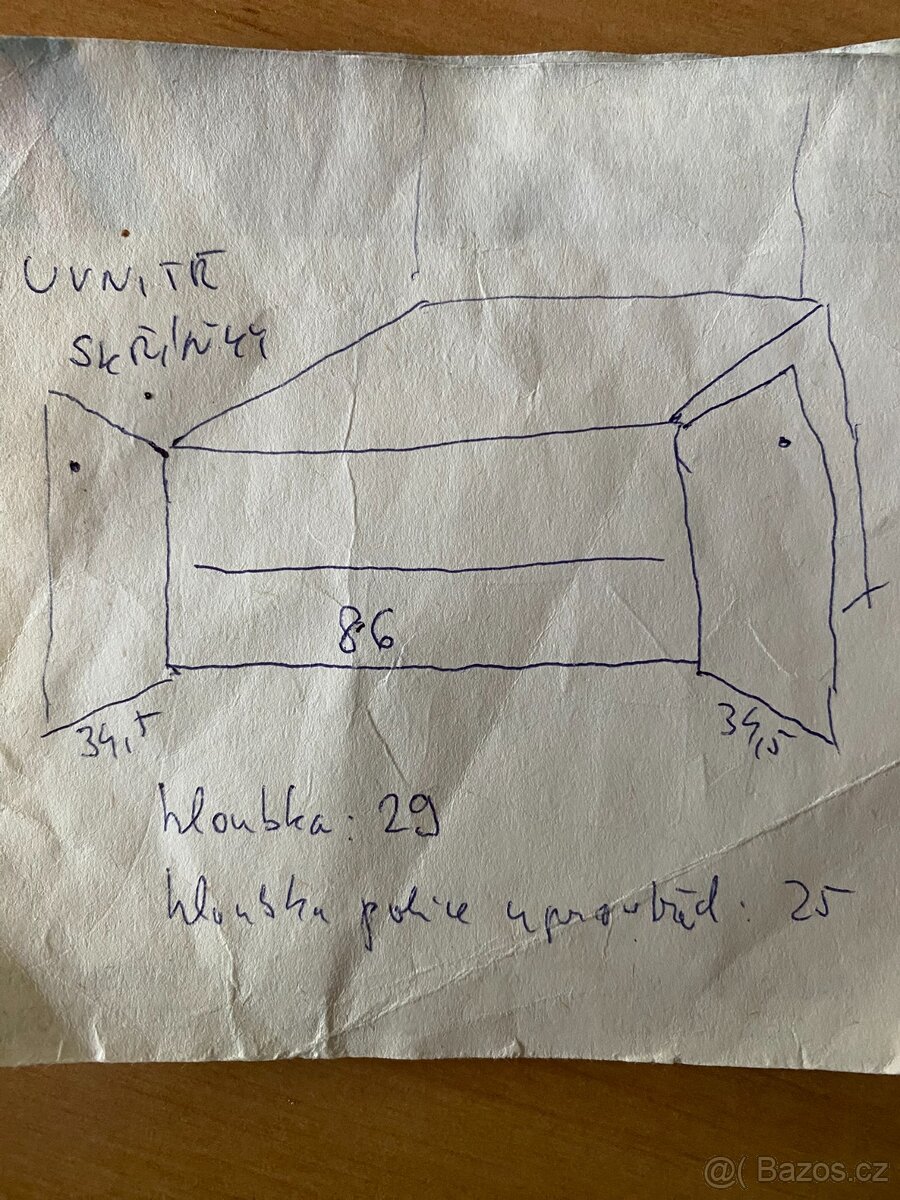 UVNITŘ
SKŘÍŇKY
86
34,5
34,5
hloubka: 29
hloubka police uprostřed: 25
@( Bazos.cz